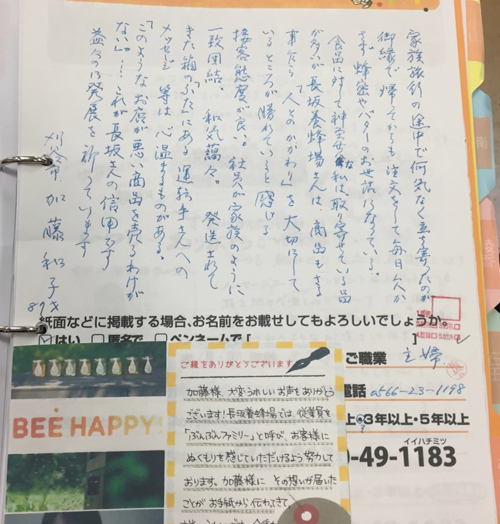 家族旅行の途中で何気なく立ち寄ったのが
御縁で帰ってからも注文をして毎日欠か
さず蜂蜜やパックのお世話になっている。
食品に対して神経な私は取り寄せている品
が多いが長坂養蜂場さんは、商品もさる
事ながら「人とのかかわり」を大切にして
いるところが優れていると感じる
接客態度が良い。社員が家族のように
一致団結、和気藹々。発送されて
きた箱の「ふた」にある運転手さんへの
メッセージ等は心温まるものがある。
「このようなお店が悪い商品を売るわけが
ない」…これが長坂さんの信用です
益々の発展を祈っています
刈谷市 加藤和子
87才
紙面などに掲載する場合、お名前をお載せしてもよろしいでしょうか。
はい 匿名で ペンネームで[ ]
ご職業 主婦
電話 0566-23-1198
3年以上・5年以上
イイハチミツ
0-49-1183
BEE HAPPY!
ご縁をありがとうございます
加藤様、大変うれしいお声をありがとう
ございます!長坂養蜂場では、従業員を
「ぶんぶんファミリー」と呼び、お客様に
ぬくもりを感じていただけるよう努力して
おります。加藤様に その想いが届いた
ことが お手紙から伝わってきて